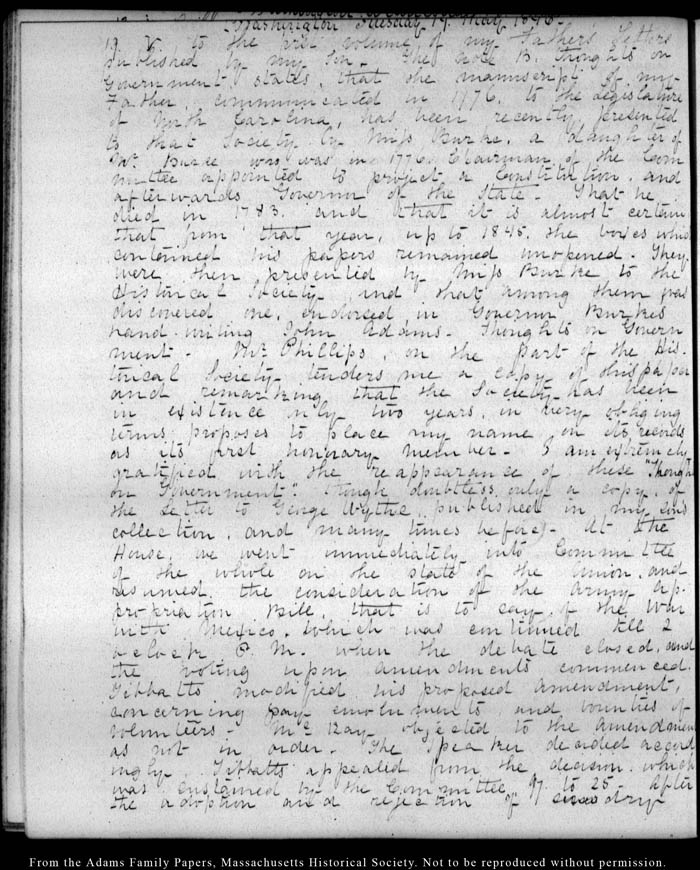 Washington Tuesday 19. May 1846.
19. V. to the volume of my Fathers Letters
published by my Son. The note B. Thoughts on
Government, states, that the manuscript of my
Father, communicated in 1776. to the Legislature
of North Carolina, has been recently presented
to that Society by Miss Burke, a daughter of
Mr Burke who was in 1776. Chairman of the Com
mittee appointed to project a Constitution, and
afterwards Governor of the State. That he
died in 1783. and that it is almost certain
that from that year, up to 1845. the boxes which
contained his papers remained unopened. They
were then presented by Miss Burke to the
Historical Society and that among them was
discovered one, endorsed in Governor Burkes
hand-writing John Adams. Thoughts on Govern
ment. Mr Phillips, on the part of the His-
torical Society tenders me a copy of this paper
and remarking that the Society has been
in existence only two years, in very obliging
terms proposes to place my name on its records
as its first honorary member. I am extremely
gratified with the reappearance of these "Thoughts
on Government." Though doubtless only a copy of
the Letter to George Wythe, published in my sons
collection, and many times before. At the
House, we went immediately into Committee
of the whole on the state of the Union, and
resumed the consideration of the Army ap-
propriation Bill that is to say of the War
with Mexico, which was continued till 2
o clock P. M. when the debate closed, and
the voting upon amendments commenced.
Tibbatts modified his proposed amendment,
concerning pay emoluments and bounties of
volunteers. McKay objected to the amendment
as not in order. The Speaker decided accord
ingly. Tibbatts appealed from the decision which
was sustained by the Committee 97 to 25 After
the adoption and rejection of sundry
From the Adams Family Papers, Massachusetts Historical Society. Not to be reproduced without permission.